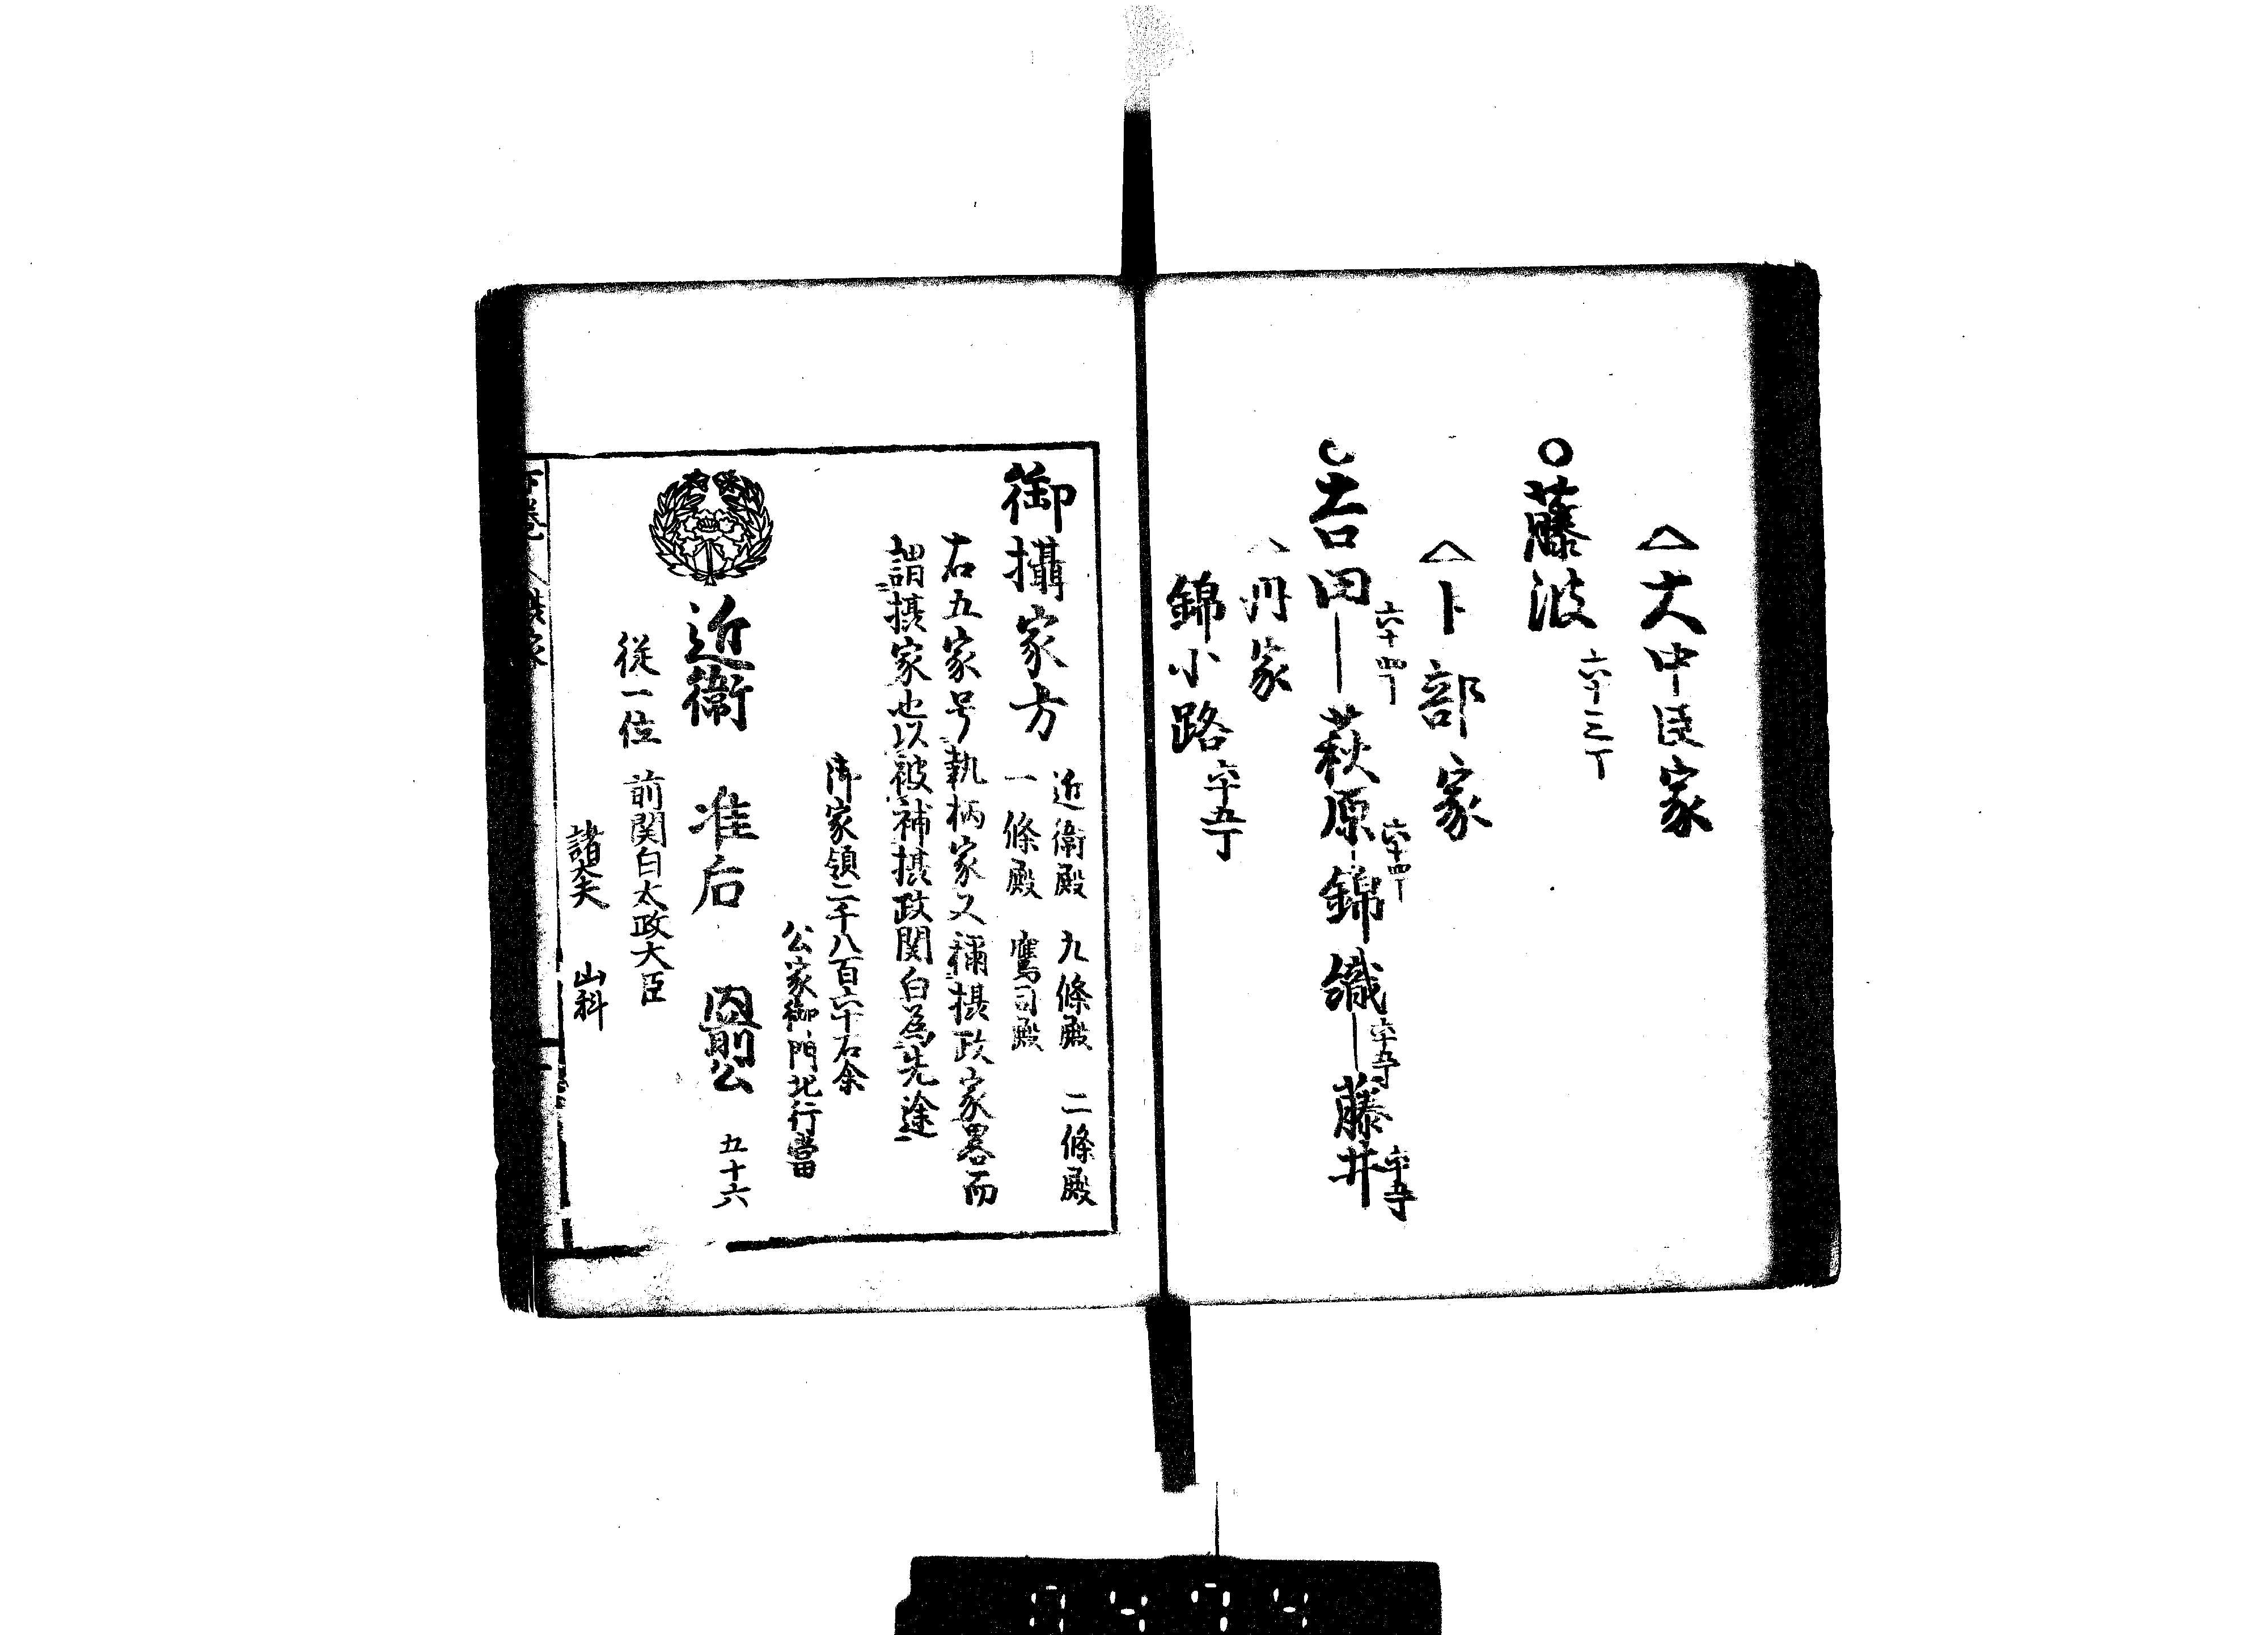 △大中臣家
○藤波 六十三丁
△卜部家
○吉田 六十四丁 萩原 六十四丁 錦織 六十五丁 藤井 六十五丁
△丹家
錦小路 六十五丁
御攝家方 近衛殿 九條殿 二條殿
一條殿 鷹司殿
右五家号執柄家又稱摂政家畧而
謂摂家也以被補摂政関白為先途
御家領二千八百六十石余
公家御門北行當
近衞 准后 內前公 五十六
従一位 前関白太政大臣
諸大夫 山科